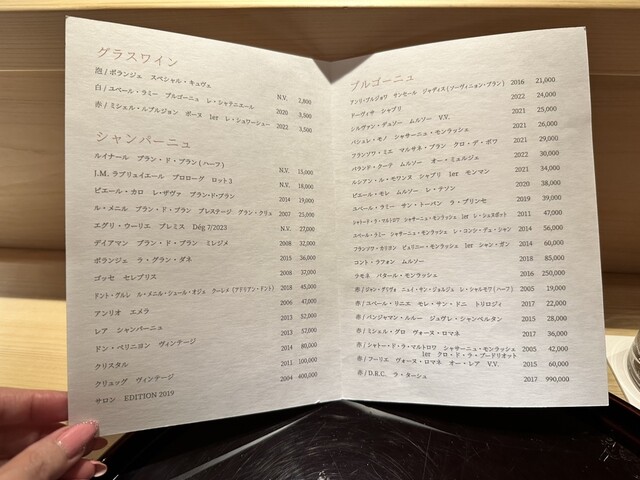 グラスワイン
泡 / ボランジェ スペシャル・キュヴェ N.V. 2,800
白 / ユベール・ラミー ブルゴーニュ レ・シャテニエール 2020 3,500
赤 / ミシェル・ルブルジョン ボーヌ 1er レ・シュワーシュー 2022 3,500
シャンパーニュ
ルイナール ブラン・ド・ブラン (ハーフ) N.V. 15,000
J.M. ラブリュイエール プロローグ ロット3 N.V. 18,000
ピエール・カロ レ・ザヴァ ブラン・ド・ブラン 2014 19,000
ル・メニル ブラン・ド・ブラン プレステージ グラン・クリュ 2007 25,000
エグリ・ウーリエ プレミス Dég 7/2023 N.V. 27,000
ディアマン ブラン・ド・ブラン ミレジメ 2008 32,000
ボランジェ ラ・グラン・ダネ 2015 36,000
ゴッセ セレブリス 2008 37,000
ドント・グルレ ル・メニル・シュール・オジェ クーレメ (アドリアン・ドント) 2018 45,000
アンリオ エメラ 2006 47,000
レア シャンパーニュ 2013 52,000
ドン・ペリニヨン ヴィンテージ 2013 57,000
クリスタル 2014 80,000
クリュッグ ヴィンテージ 2011 100,000
サロン EDITION 2019 2004 400,000
ブルゴーニュ
アンリ・ブルジョワ サンセール ジャディス (ソーヴィニョン・ブラン) 2016 21,000
ドーヴィサ シャブリ 2022 24,000
シルヴァン・デュソー ムルソー V.V. 2021 25,000
バシュレ・モノ シャサーニュ・モンラッシェ 2021 26,000
フランソワ・ミエ マルサネ・ブラン クロ・デ・ポワ 2021 29,000
バランド・クーテ ムルソー オー・ミュルジェ 2022 30,000
ルシアン・ル・モワンヌ シャブリ 1er モンマン 2021 34,000
ピエール・モレ ムルソー レ・テソン 2020 38,000
ユベール・ラミー サン・トーバン ラ・プリンセ 2019 39,000
シャトー・ド・ラ・マルトロワ シャサーニュ・モンラッシェ 1er レ・シュヌボット 2011 47,000
ユベール・ラミー シャサーニュ・モンラッシェ レ・コンシ・デュ・シャン 2014 56,000
フランソワ・カリヨン ピュリニー・モンラッシェ 1er シャン・ガン 2014 60,000
コント・ラフォン ムルソー 2018 85,000
ラモネ バタール・モンラッシェ 2016 250,000
赤 / ジャン・グリヴォ ニュイ・サン・ジョルジュ レ・シャルモワ (ハーフ) 2005 19,000
赤 / ユベール・リニエ モレ・サン・ドニ トリロジィ 2017 22,000
赤 / バンジャマン・ルルー ジュヴレ・シャンベルタン 2015 28,000
赤 / ミシェル・グロ ヴォーヌ・ロマネ 2017 36,000
赤 / シャトー・ド・ラ・マルトロワ シャサーニュ・モンラッシェ 2005 42,000
1er クロ・ド・ラ・ブードリオット
赤 / フーリエ ヴォーヌ・ロマネ オー・レア V.V. 2015 60,000
赤 / D.R.C. ラ・ターシュ 2017 990,000